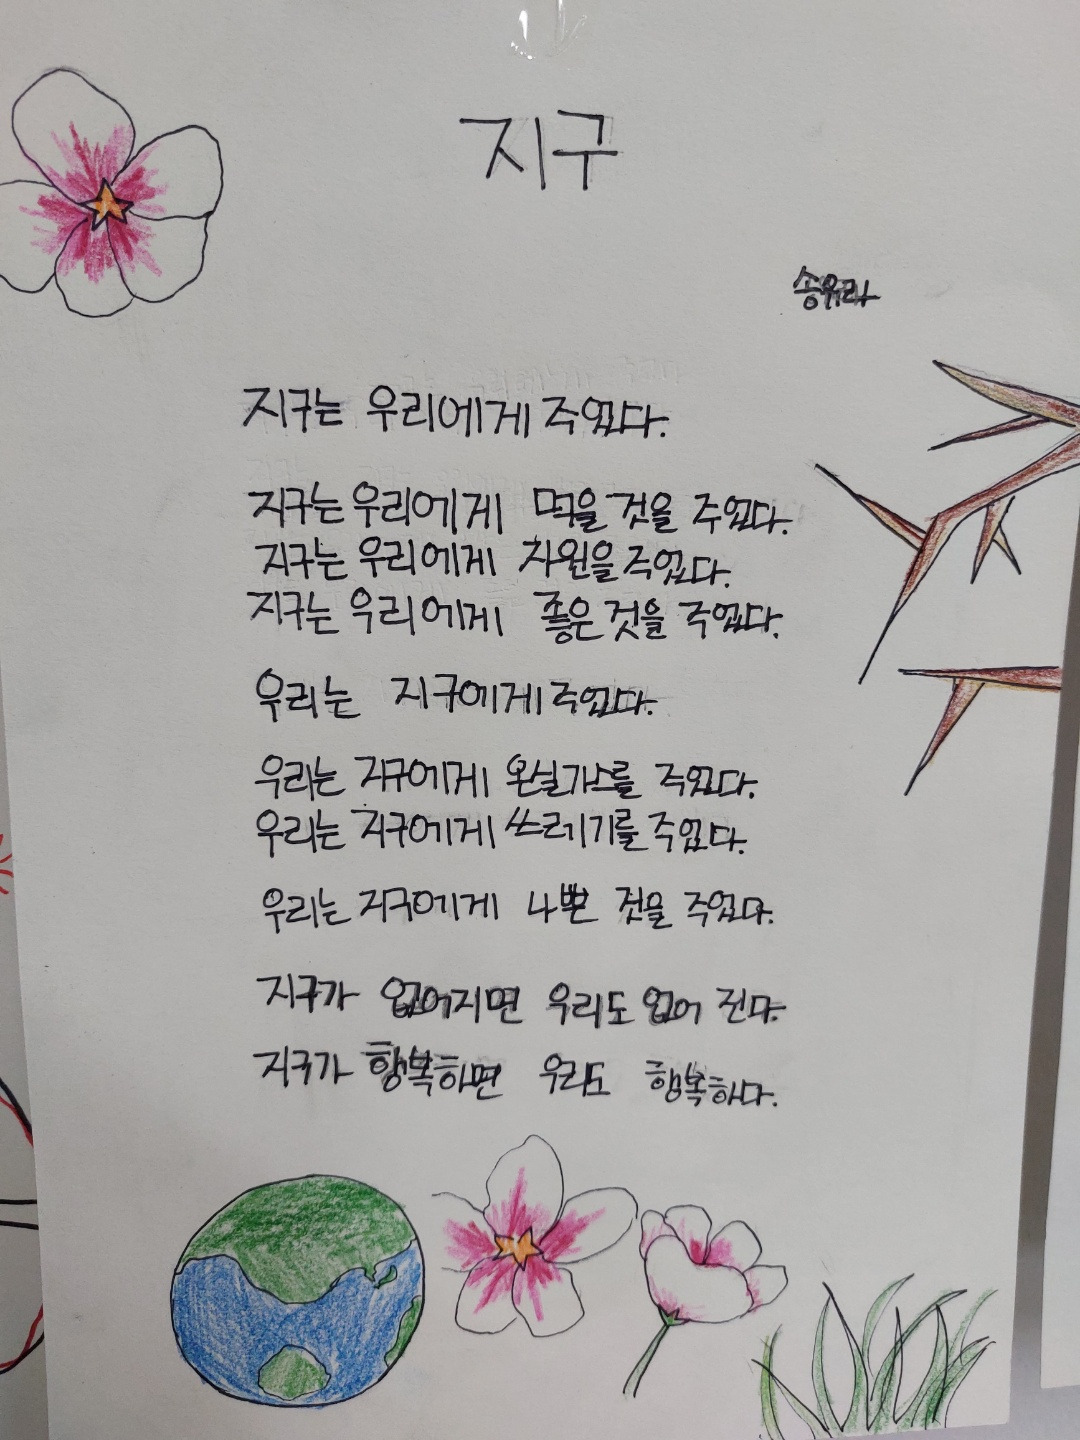 지구
송유라
지구는 우리에게 주었다.
지구는 우리에게 먹을 것을 주었다.
지구는 우리에게 자원을 주었다.
지구는 우리에게 좋은 것을 주었다.
우리는 지구에게 주었다.
우리는 지구에게 온실가스를 주었다.
우리는 지구에게 쓰레기를 주었다.
우리는 지구에게 나쁜 것을 주었다.
지구가 없어지면 우리도 없어 진다.
지구가 행복하면 우리도 행복하다.